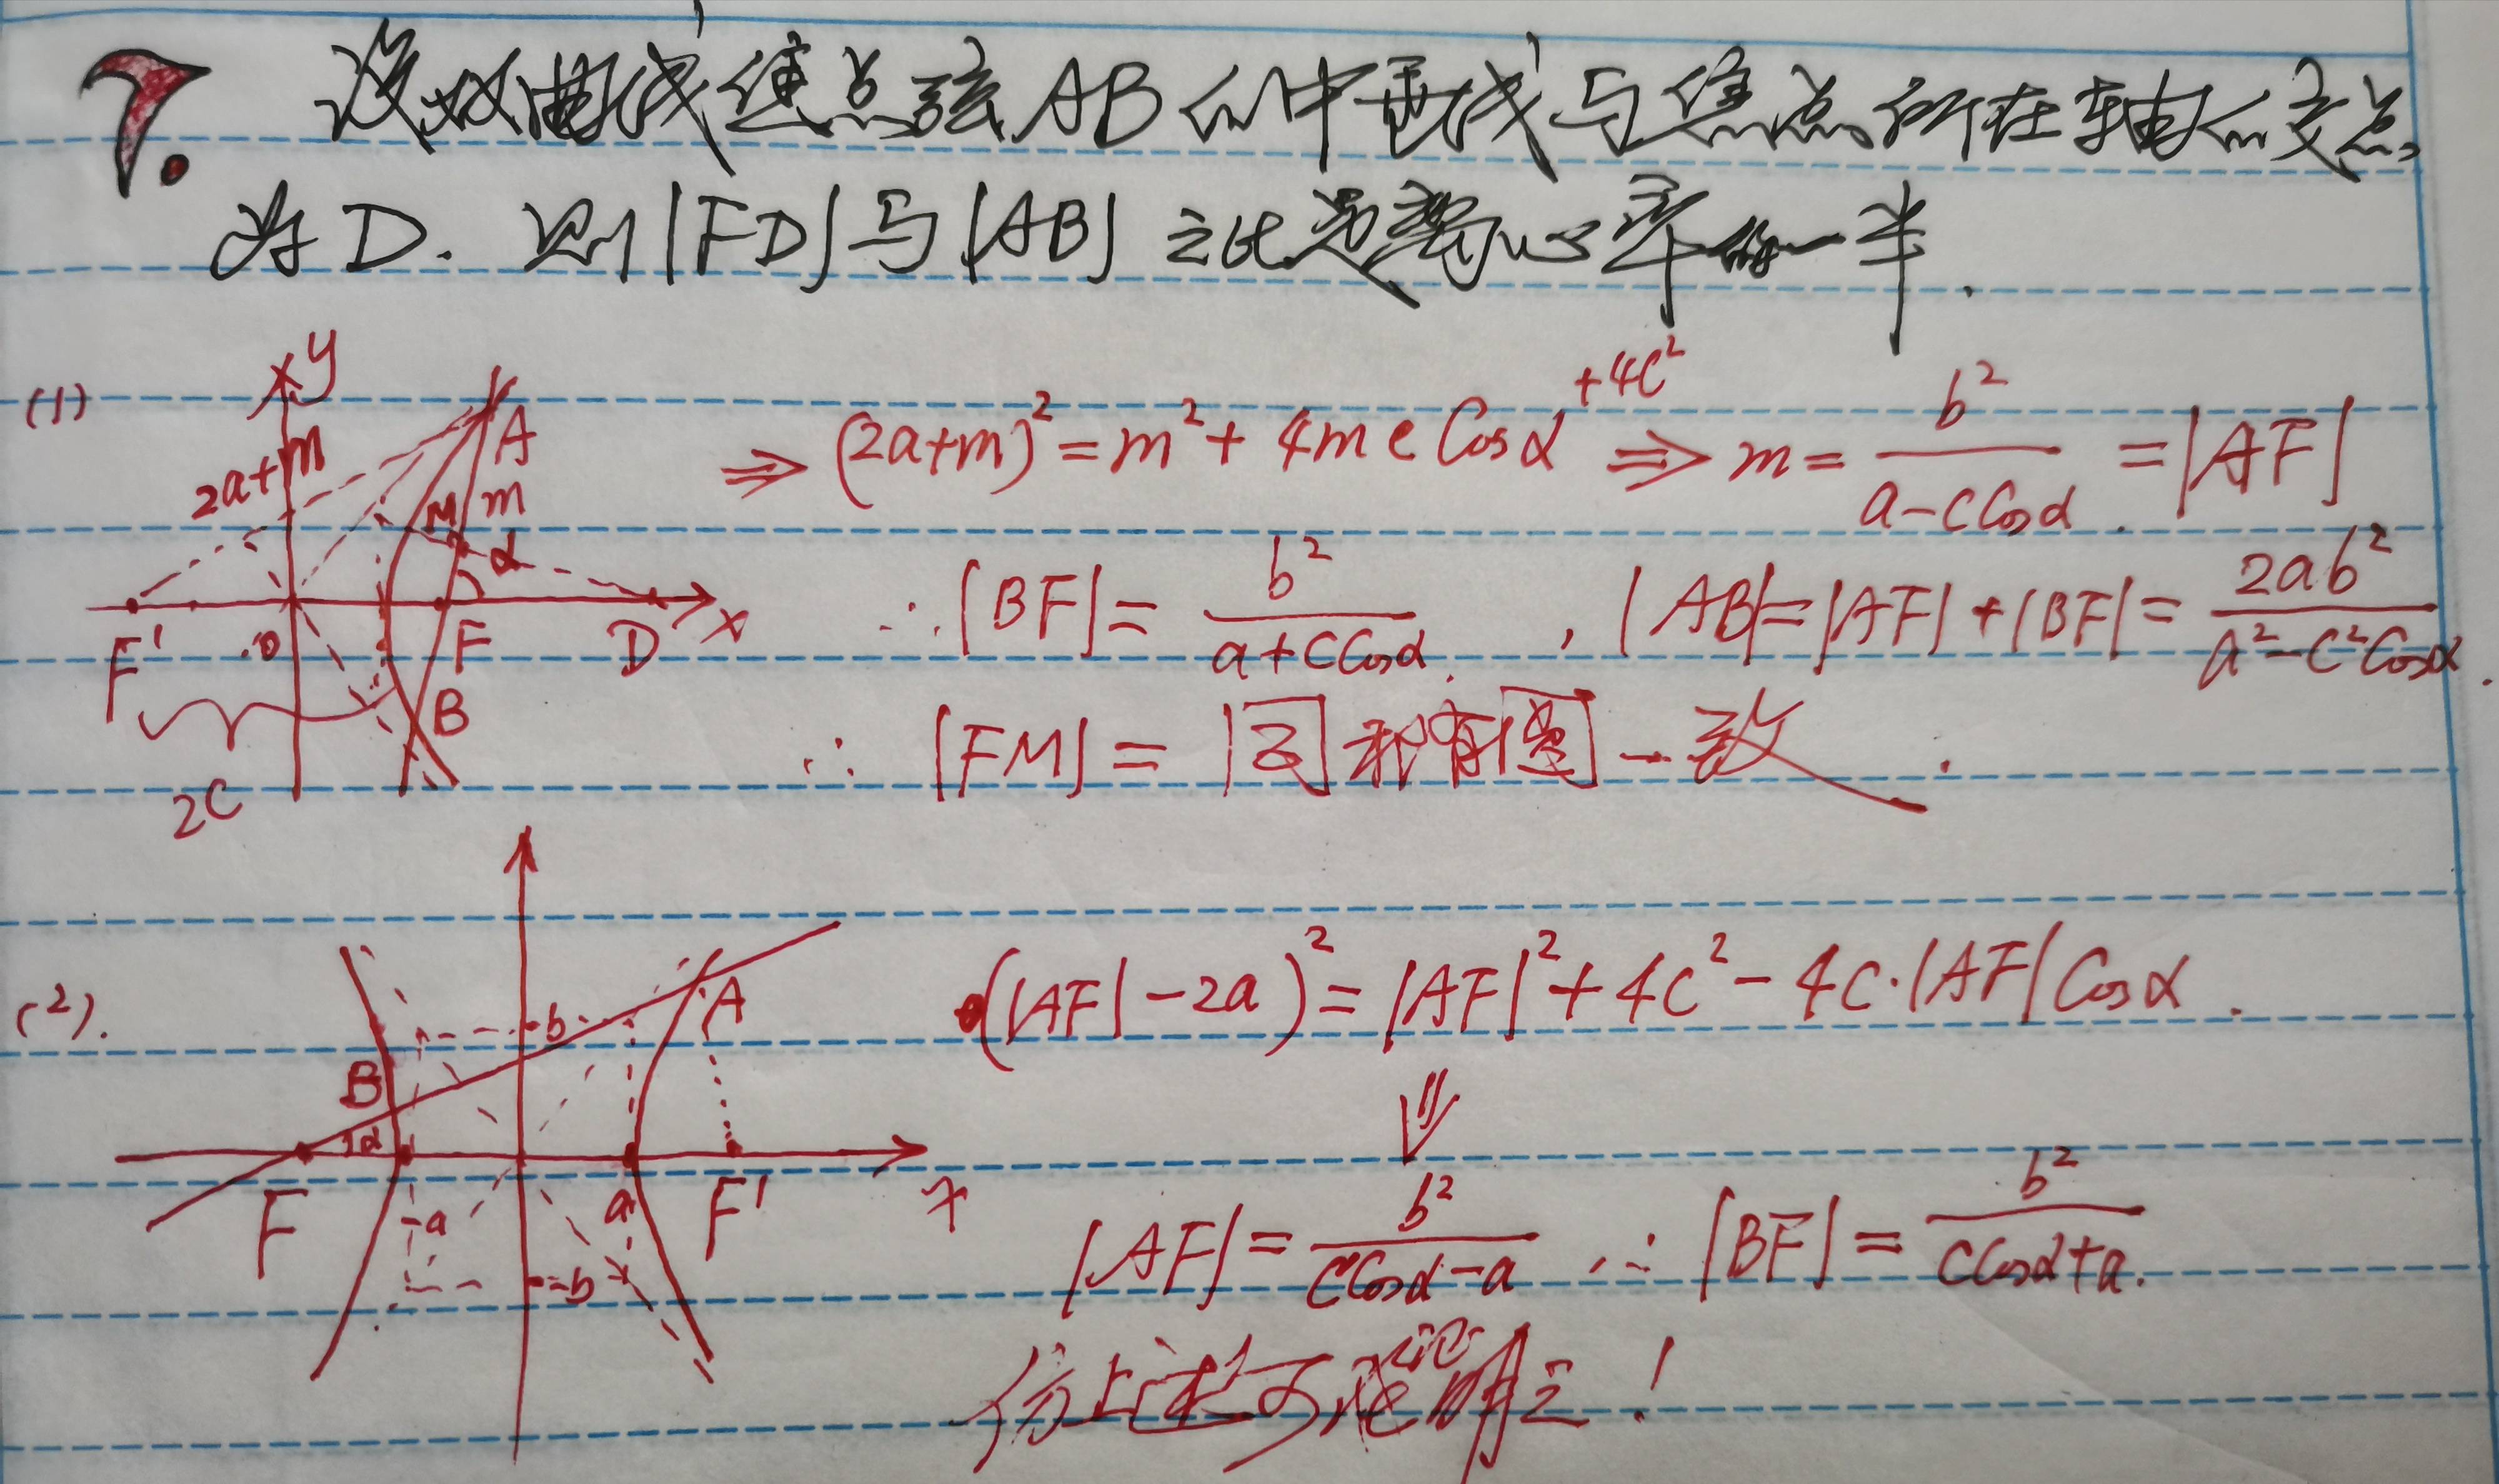 7. 设双曲线焦点弦AB的中垂线与焦点所在轴的交点
为D. 则|FD|与|AB|之比是离心率的一半.
(1)
y
A
2a+m
M
m
α
x
F'
O
F
D
B
2C
⇒ (2a+m)² = m² + 4mc Cosα +4C² ⇒ m = b²/(a-cCosα). = |AF|
∴ |BF| = b²/(a+cCosα). , |AB| = |AF| + |BF| = 2ab²/(a²-c²Cosα).
∴ |FM| = 同 和 一致.
(2).
b
A
B
α
F
-a
a
F'
x
-b
(|AF|-2a)² = |AF|² + 4C² - 4C·|AF|Cosα.
⇓
|AF| = b²/(cCosα-a) ∴ |BF| = b²/(cCosα+a).
仿上述可证明之!